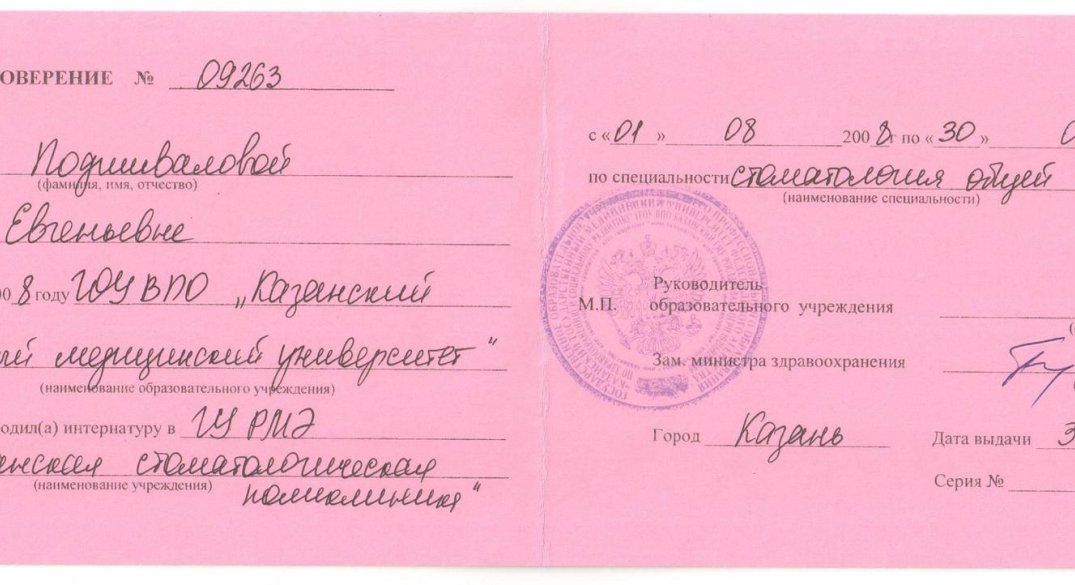 ОВЕРЕНИЕ № 09263
Подшиваловой
(фамилия, имя, отчество)
Евгеньевне
00 8 году ГОУ ВПО „Казанский
медицинский университет"
(наименование образовательного учреждения)
одил(а) интернатуру в ГУ РМЭ
стоматологическая
(наименование учреждения) поликлиника"
с «01» 08 2008 г по «30» 0
по специальности стоматология общей
(наименование специальности)
Руководитель
М.П. образовательного учреждения
Зам. министра здравоохранения
Город Казань Дата выдачи 3
Серия №